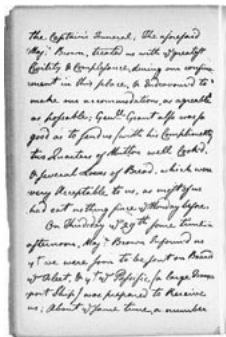 the Captain's Funeral; The aforesaid
Majr. Brown, treated us with ye greatest
Civility & Complysance, during our confine-
ment in this place, & Endeavour'd to
make our accommodation, as agreeable
as possable; Genll. Grant also was so
good as to send us (with his Compliments)
two Quarters of Mutton well Cook'd,
& several Loaves of Bread, which were
very Acceptable to us, as most of us
had eat nothing since ye Monday before.
On Thirdsday ye 29th some time in
afternoon, Majr. Brown Inform'd us
yt we were soon to be sent on Board
ye Fleet, & yt ye Pacific (a large Transs-
port Ship) was prepared to Receive
us; About ye same time, a number